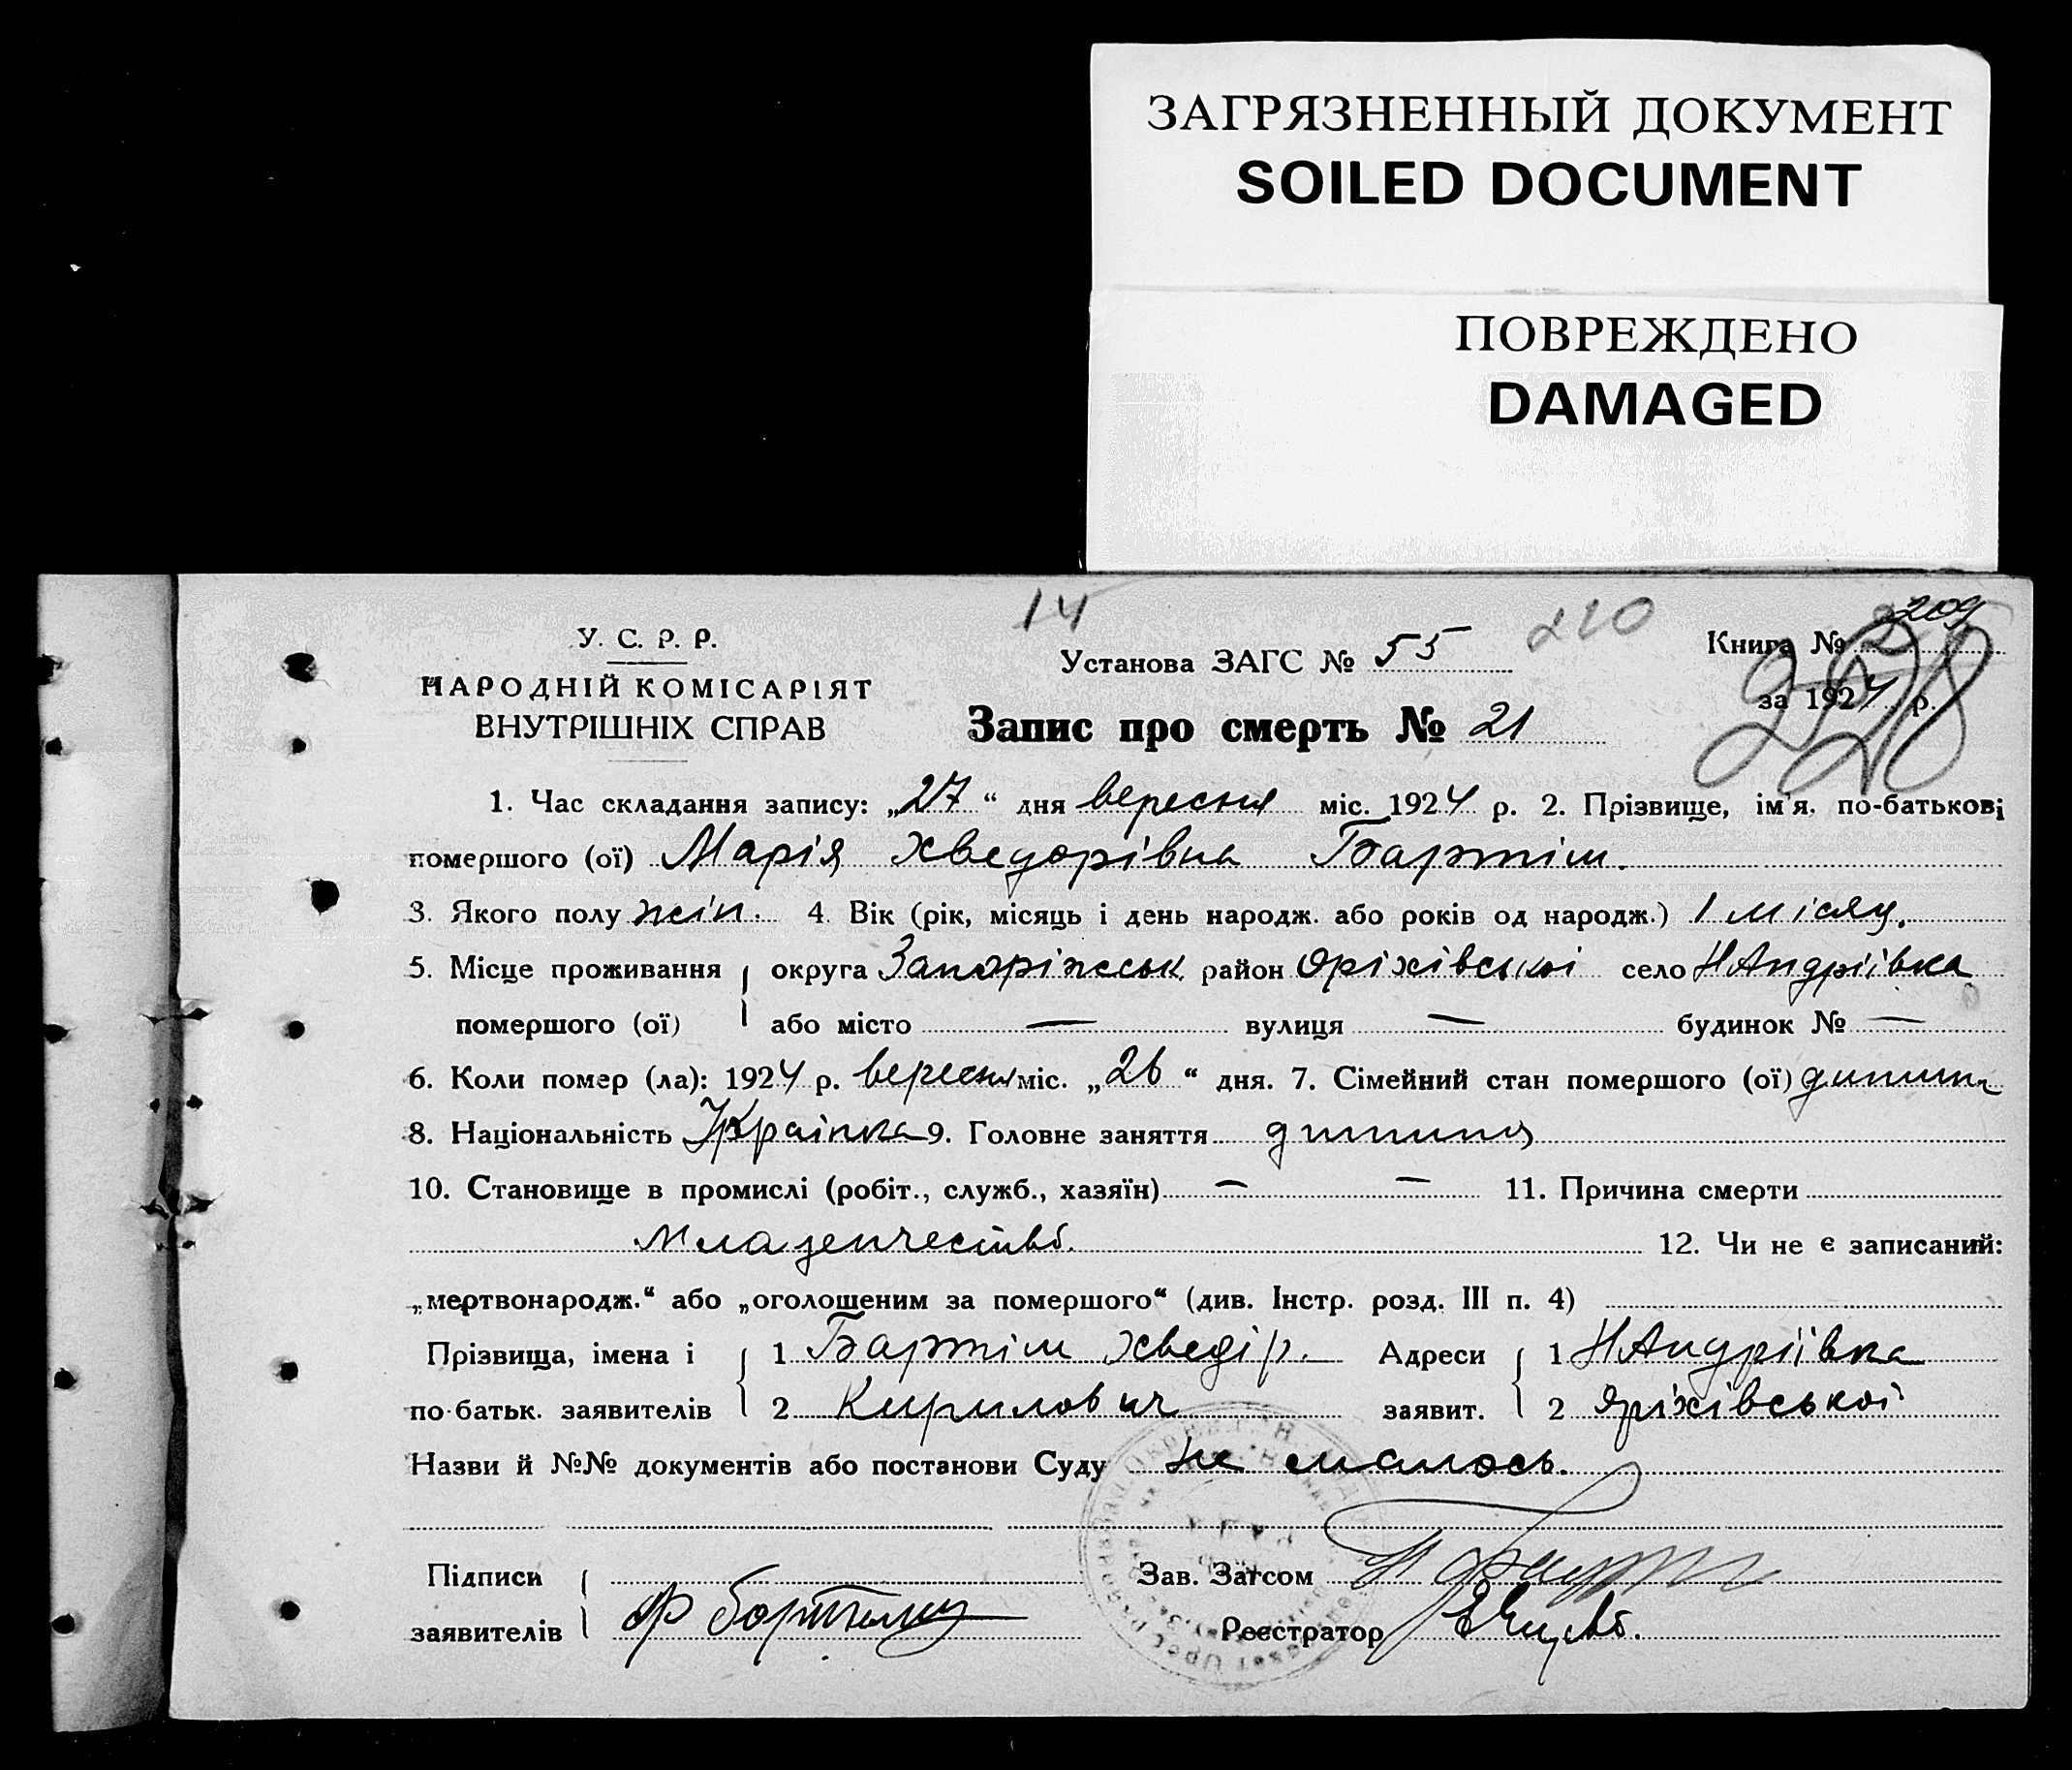 ЗАГРЯЗНЕННЫЙ ДОКУМЕНТ
SOILED DOCUMENT
ПОВРЕЖДЕНО
DAMAGED
14
210
209
228
У. С. Р. Р.
НАРОДНІЙ КОМІСАРІЯТ
ВНУТРІШНІХ СПРАВ
Установа ЗАГС № 55
Книга №
за 1924 р.
Запис про смерть № 21
1. Час складання запису: „27“ дня вересня міс. 1924 р. 2. Прізвище, ім'я, по-батькові
помершого (ої) Марія Хведорівна Бартіш.
3. Якого полу жін. 4. Вік (рік, місяць і день народж. або років од народж.) 1 місяц.
5. Місце проживання округа Запоріжськ район Оріхівськоі село НАндріївка
помершого (ої) або місто — вулиця — будинок № —
6. Коли помер (ла): 1924 р. вересня міс. „26“ дня. 7. Сімейний стан помершого (ої) дитина
8. Національність Украінка 9. Головне заняття дитина
10. Становище в промислі (робіт., служб., хазяїн) — — 11. Причина смерти
Младенчество. 12. Чи не є записаний:
„мертвонародж.“ або „оголошеним за помершого“ (див. Інстр. розд. III п. 4)
Прізвища, імена і 1 Бартіш Хведір. Адреси 1 НАндріївка
по-батьк. заявителів 2 Кирилович заявит. 2 Оріхівськоі
Назви й №№ документів або постанови Суду не малось.
Підписи Зав. Загсом
заявителів Ф Реєстратор